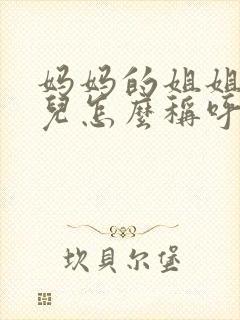 妈妈的姐姐
兒怎麼稱呼
坎貝尔堡